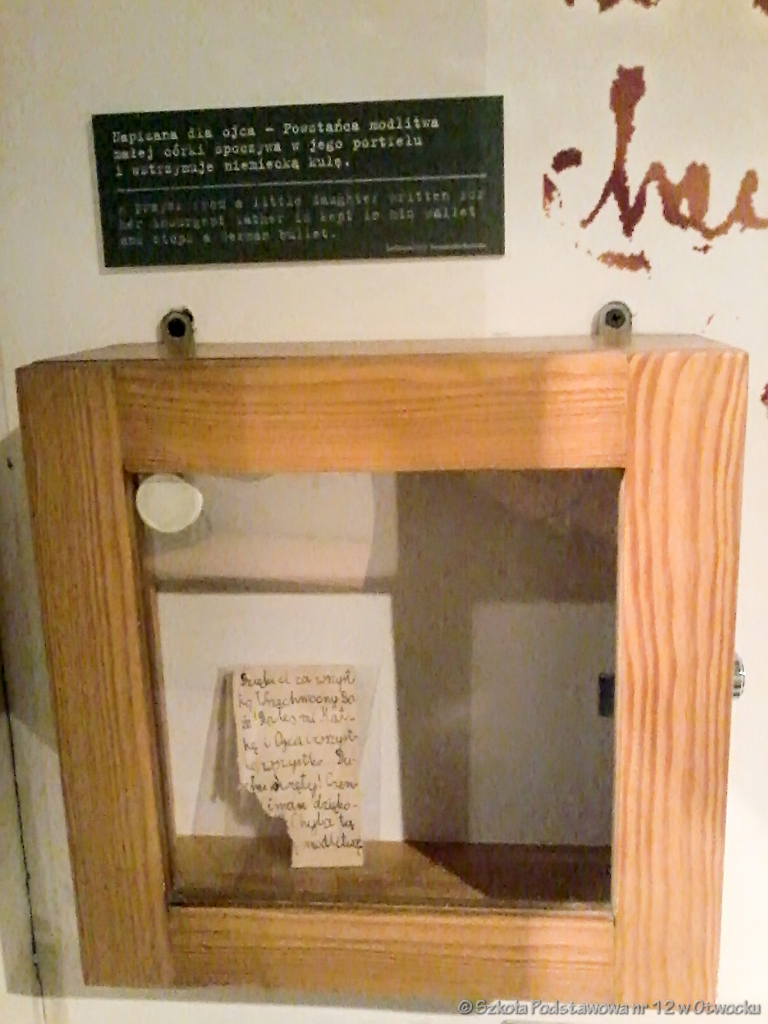 Napisana dla ojca - Powstańca modlitwa
małej córki spoczywa w jego portfelu
i wstrzymuje niemiecką kulę.
A prayer from a little daughter written for
her insurgent father is kept in his wallet
and stops a German bullet.
chu
Dzięki ci za wszyst
ko Wszechmocny Bo
że! Dałeś mi Mat-
kę i Ojca i wszyst-
ko wszystko. Du-
chu święty! Czem
imam dzięko-
Chyba tą
modlitwą
© Szkoła Podstawowa nr 12 w Otwocku